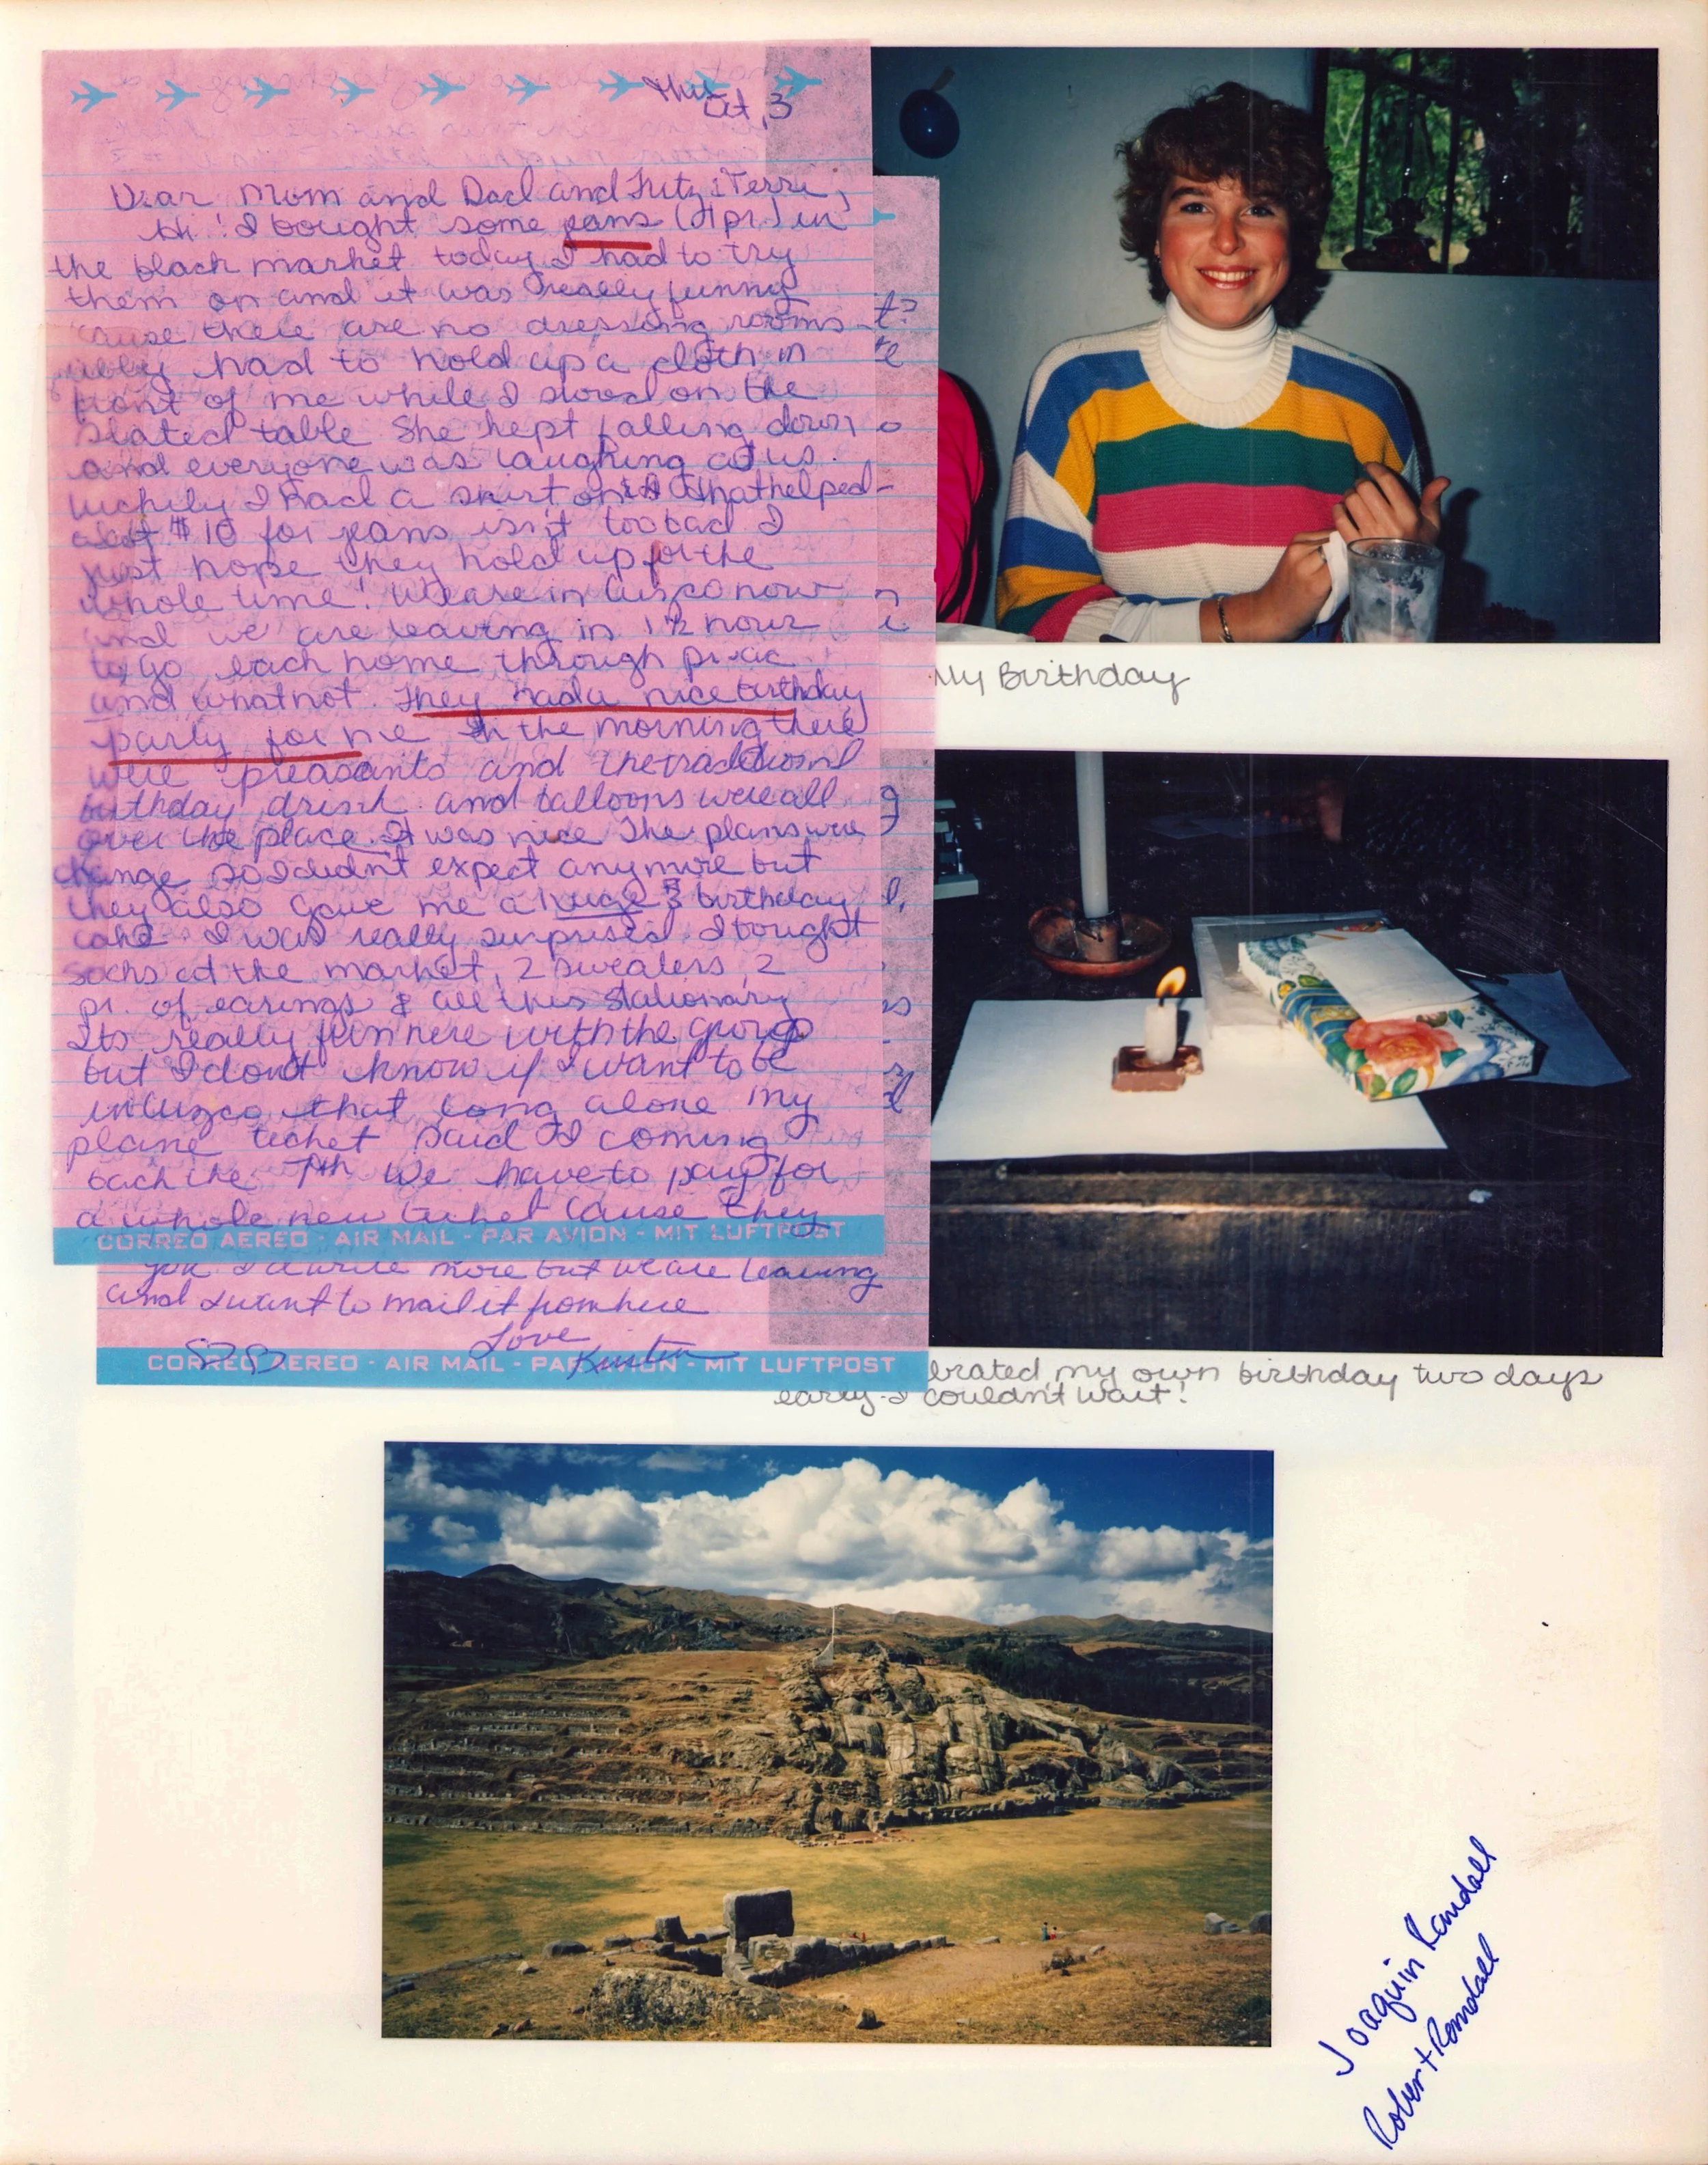 Thur
Oct, 3
Dear Mom and Dad and Fritz & Terri,
Hi! I bought some jeans (1 pr.) in
the black market today I had to try
them on and it was really funny
'cause there are no dressing rooms
had to hold up a cloth in
front of me while I stood on the
slated table She kept falling down
and everyone was laughing at us.
luckily I had a shirt on that helped-
$10 for jeans isn't too bad I
just hope they hold up for the
whole time! We are in Cusco now
and we are leaving in 1 1/2 hour
to go each home through
and whatnot. They had a nice birthday
party for me In the morning there
were presants and the traditional
birthday drink and balloons were all
over the place. It was nice The plans were
change so I didn't expect anymore but
they also gave me a huge birthday
cake. I was really surprised. I bought
socks at the market, 2 sweaters, 2
pr. of earings & all this stationary
Its really fun here with the group
but I don't know if I want to be
in Cuzco that long alone my
plane ticket said I coming
back the 7th We have to pay for
a whole new ticket cause they
CORREO AEREO - AIR MAIL - PAR AVION - MIT LUFTPOST
you I'd write more but we are leaving
and I want to mail it from here
Love
Kirsten
CORREO AEREO - AIR MAIL - PAR AVION - MIT LUFTPOST
My Birthday
brated my own birthday two days
early-I couldn't wait!
Joaquin Randall
Robert Randall